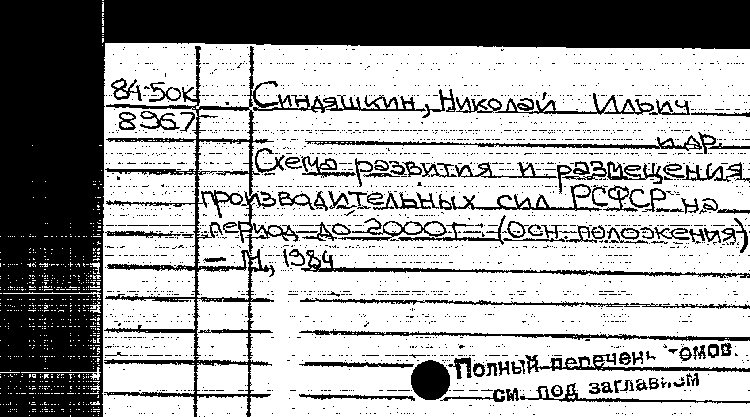 84-50к
8967
Синдяшкин, Николай Ильич
и др.
Схема развития и размещения
производительных сил РСФСР на
период до 2000 г. : (Осн. положения)
— М., 1984
Полный перечень томов
см. под заглавием